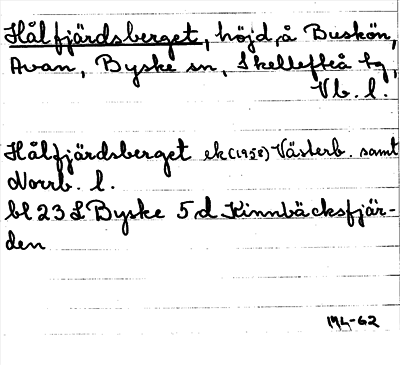 Hålfjärdsberget, höjd, å Buskön,
Avan, Byske sn, Skellefteå tg,
Vb. l.
Hålfjärdsberget ek (1958) Västerb. samt
Norrb. l.
bl 23 L Byske 5 d Kinnbäcksfjär-
den
M4-62